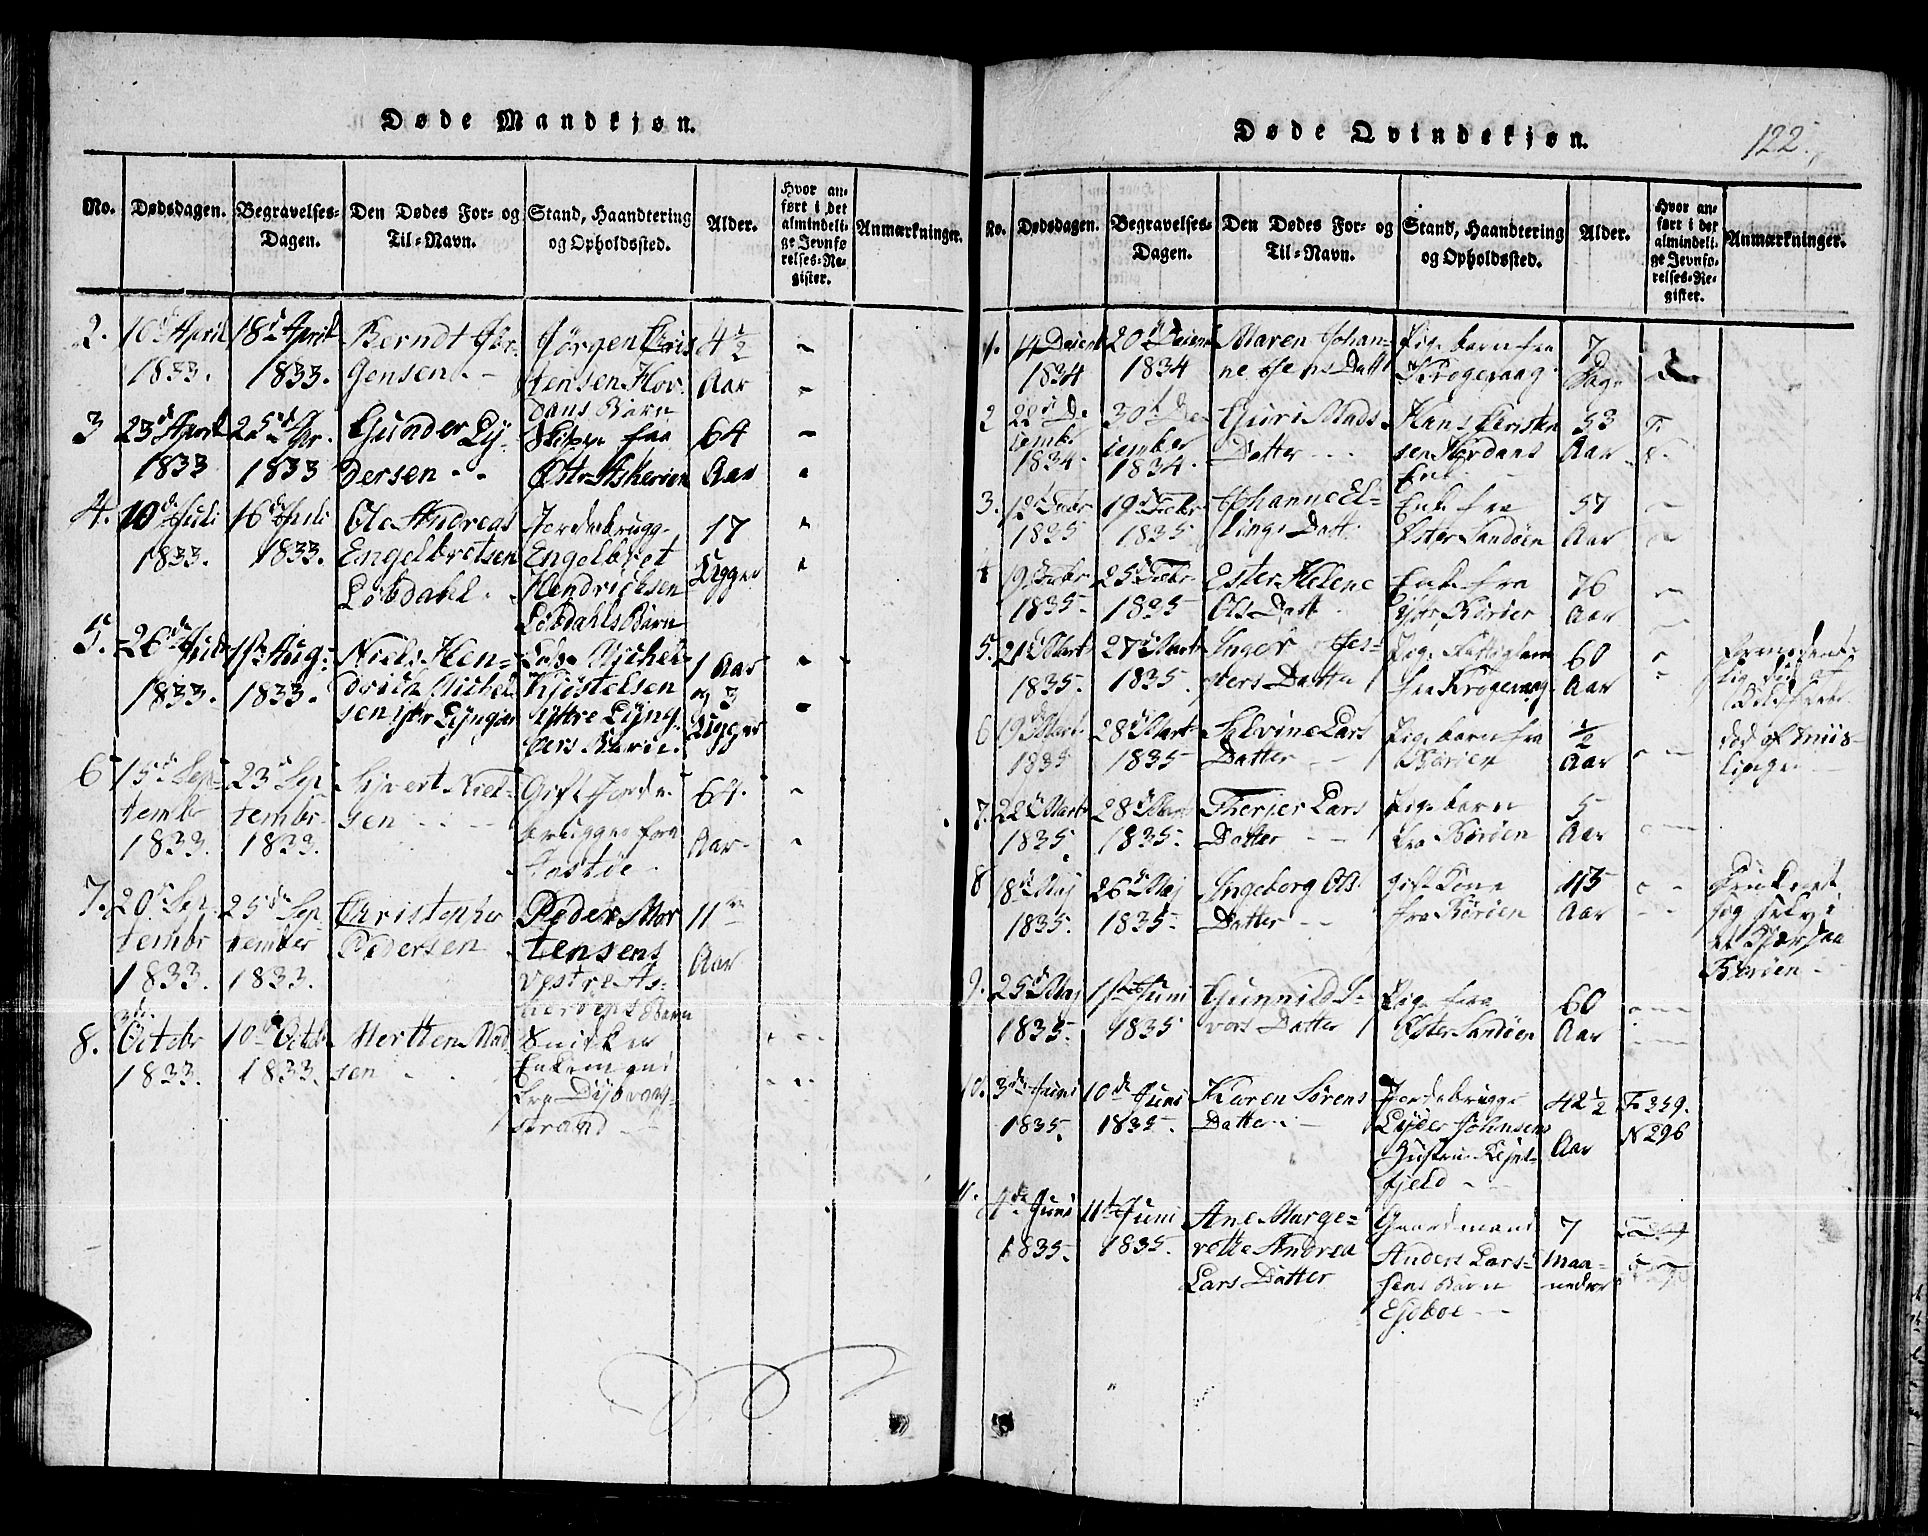 Døde Mandkjøn.
No.
Dødsdagen.
Begravelses-
Dagen.
Den Dødes For- og
Til-Navn.
Stand, Haandtering
og Opholdssted.
Alder.
Hvor an-
ført i det
almindeli-
ge Jevnfø
relses-Re-
gister.
Anmærkninger.
2.
10d April
1833.
18d April
1833.
Berndt Jør-
gensen.
Jørgen Chris
tensen Hov
dans Barn
4½
Aar
3
23d April
1833
25d Apr.
1833
Gunder Ey-
dersen
Skipper fra
64
Aar
4.
10de Juli
1833.
16de Juli
1833.
Ole Andreas
Engelbretsen
Løbdahl.
Jordebrugg.
Engelbret
Hendrichsen
Løbdahls Barn
17
Uger
5.
26de Juli
1833.
1ste Aug:
1833.
Niels Hen-
drich Michel
sen
Kjøstelsen
Yttre Lyng-
1 Aar
og 3
Uger
6
15d Sep-
tembr
1833.
23d Sep
tembr.
1833.
Syvert Niel-
sen
Gift Jorde-
brugger fra
Tostøe
Aar
7.
20d Sep
tembr
1833.
25de Sep
tember
1833.
Christopher
Pedersen
Peder Mor
tensens
Vestre As-
kerøens Barn
11
Aar
8.
3de
Octobr
1833.
10de Octob
1833.
Mortten Mad
sen
Snidker
Enkemand
fra Dybvogs-
strand
Døde Qvindekjøn.
122.
No.
Dødsdagen.
Begravelses-
Dagen.
Den Dødes For- og
Til-Navn.
Stand, Haandtering
og Opholdssted.
Alder.
Hvor an-
ført i det
almindeli-
ge Jevnfø-
relses-Re-
gister.
Anmærkninger.
1.
14 Decemb
1834
20d Decemb
1834
Maren Johan-
ne Jens Datt
Pige barn fra
Krogevaag
7
Dage
2
22d De
cembr
1834.
30d De
cember
1834.
Guri Mads
Datter
Hans Christen
sen Hovdans
Enke
53
Aar
3.
12d Febr
1835
19d Febr
1835
Johanne El-
lings Datt.
Enke fra
Øster Sandøen
57
Aar
4
19d Febr
1835.
25d Febr
1835
Ester Helene
Ols Datt
Enke fra
Yttr Borøer
76
Aar
5.
21d Mart
1835.
27d Mart
1835.
Inger Jes-
pers Datter
Pige Fattiglem
fra Krogevaag
60
Aar
6
19d Mart
1835
28d Mart
1835
Sylvine Lars
Datter
Pige barn fra
Borøen
½
Aar
død af mæs-
linger
7.
22d Mart
1835.
28d Mart
1835.
Therjer Lars
Datter
Pige barn
fra Borøen
5
Aar
8
18d Maj
1835.
26d Maj
1835.
Ingeborg Ols
Datter
gift Kone
fra Borøen
45
Aar
Druknet
sig selv i
et Kjær paa
Borøen
9.
25d Maj
1835.
1ste Juni
1835
Gunnild I-
vors Datter
Pige fra
Øster Sandøen
60
Aar
10.
3de Juni
1835.
10de Juni
1835.
Karen Sørens
Datter
Jordebrugge
Lyder Johnsens
Hustru
fjeld
42½
Aar
F 359.
N 296
11.
4de Juni
1835.
11te Juni
1835.
Ane Marge-
rethe Andrea
Lars Datter
Gaardmand
Anders Lars-
sens Barn
Eydboe
7
maa-
neder